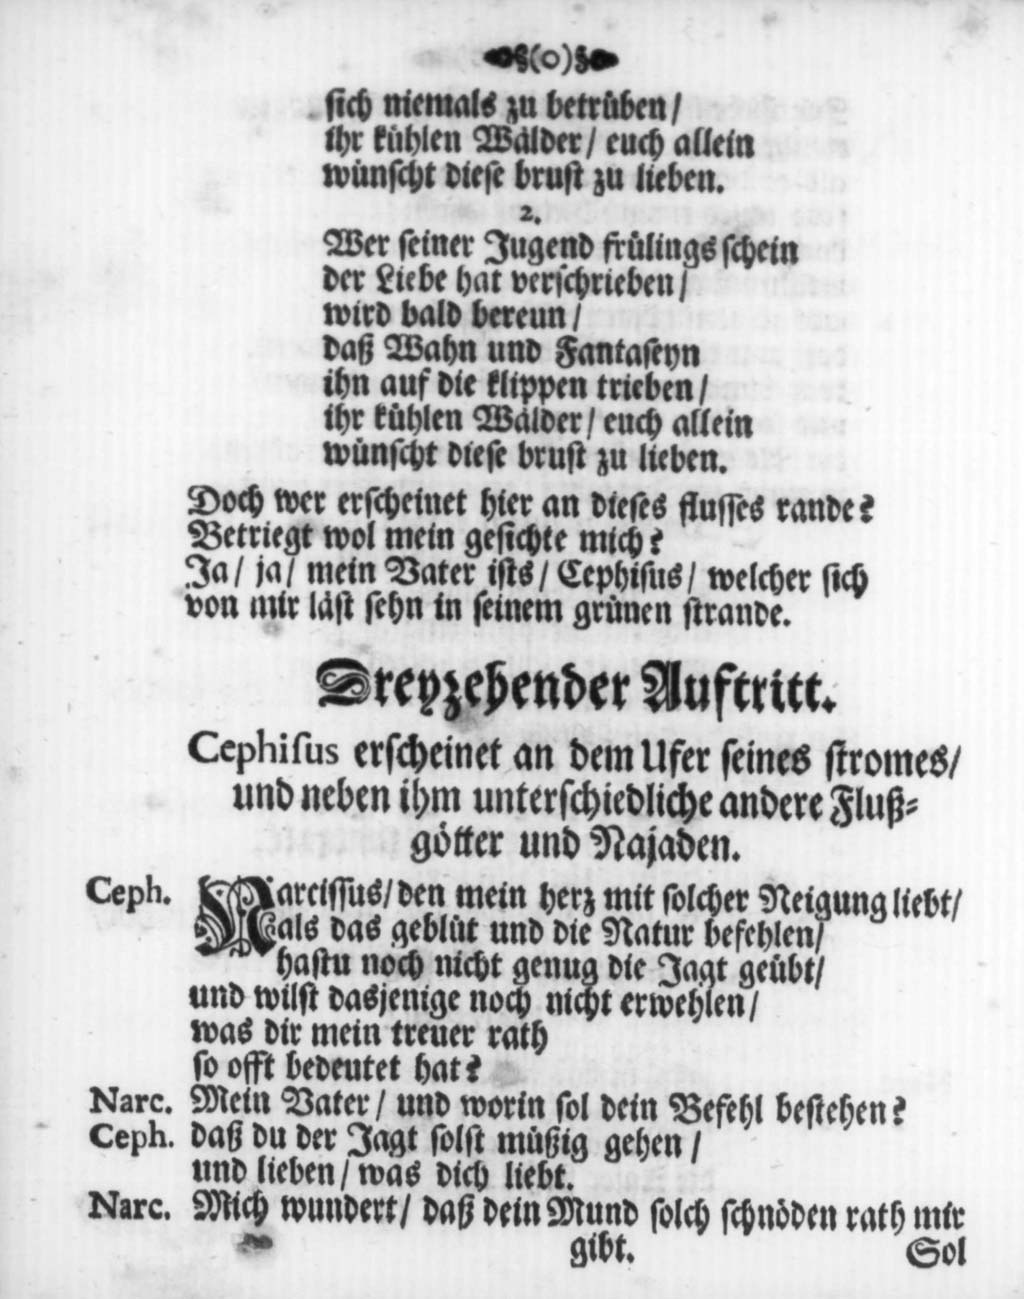 §(o)§
sich niemals zu betrüben/
ihr kühlen Wälder/ euch allein
wünscht diese brust zu lieben.
2.
Wer seiner Jugend frülings schein
der Liebe hat verschrieben/
wird bald bereun/
daß Wahn und Fantaseyn
ihn auf die klippen trieben/
ihr kühlen Wälder/ euch allein
wünscht diese brust zu lieben.
Doch wer erscheinet hier an dieses flusses rande?
Betriegt wol mein gesichte mich?
Ja/ ja/ mein Vater ists/ Cephisus/ welcher sich
von mir läst sehn in seinem grünen strande.
Dreyzehender Auftritt.
Cephisus erscheinet an dem Ufer seines stromes/
und neben ihm unterschiedliche andere Fluß-
götter und Najaden.
Ceph. Narcissus/ den mein herz mit solcher Neigung liebt/
als das geblüt und die Natur befehlen/
hastu noch nicht genug die Jagt geübt/
und wilst dasjenige noch nicht erwehlen/
was dir mein treuer rath
so offt bedeutet hat?
Narc. Mein Vater/ und worin sol dein Befehl bestehen?
Ceph. daß du der Jagt solst müßig gehen/
und lieben/ was dich liebt.
Narc. Mich wundert/ daß dein Mund solch schnöden rath mir
gibt. Sol